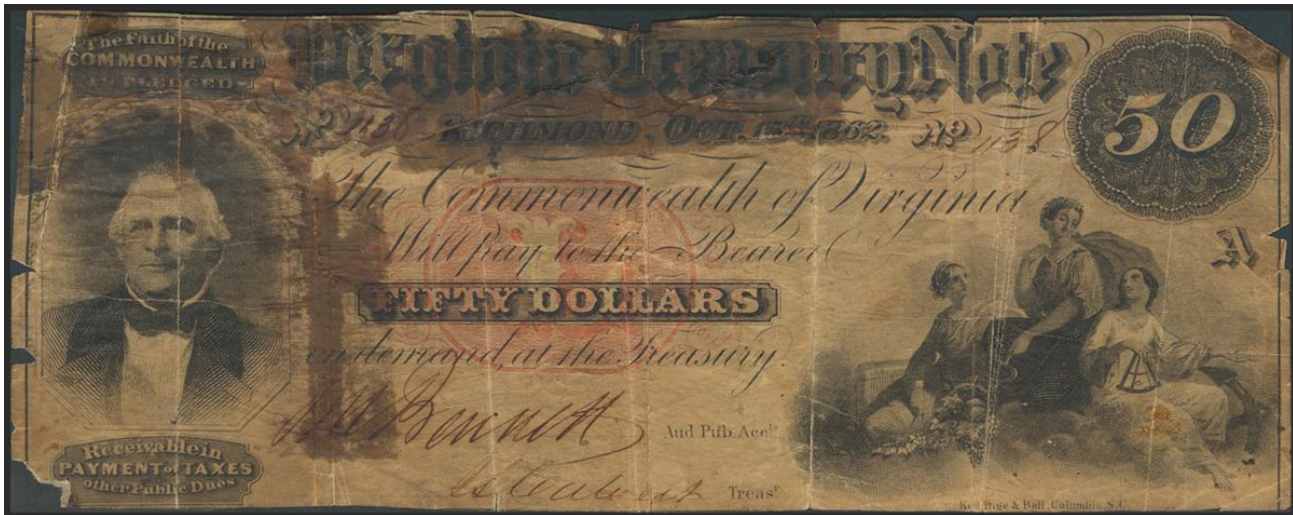 The Faith of the
COMMONWEALTH
IS PLEDGED
Virginia Treasury Note
No 1138 RICHMOND, OCT. 15th 1862. No 1138
50
The Commonwealth of Virginia
Will pay to the Bearer
A
FIFTY DOLLARS
on demand, at the Treasury.
Bennett Aud Pub. Accts
Receivable in
PAYMENT of TAXES
other Public Dues
Treasr
Keatinge & Ball, Columbia, S.C.